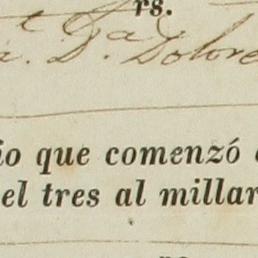 rs.
a. D.ª Dolore
io que comenzó
el tres al millar